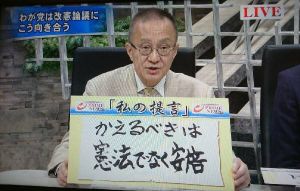 わが党は改憲論議に
こう向き合う
LIVE
「私の提言」
PRIME
NEWS
かえるべきは
憲法でなく安倍